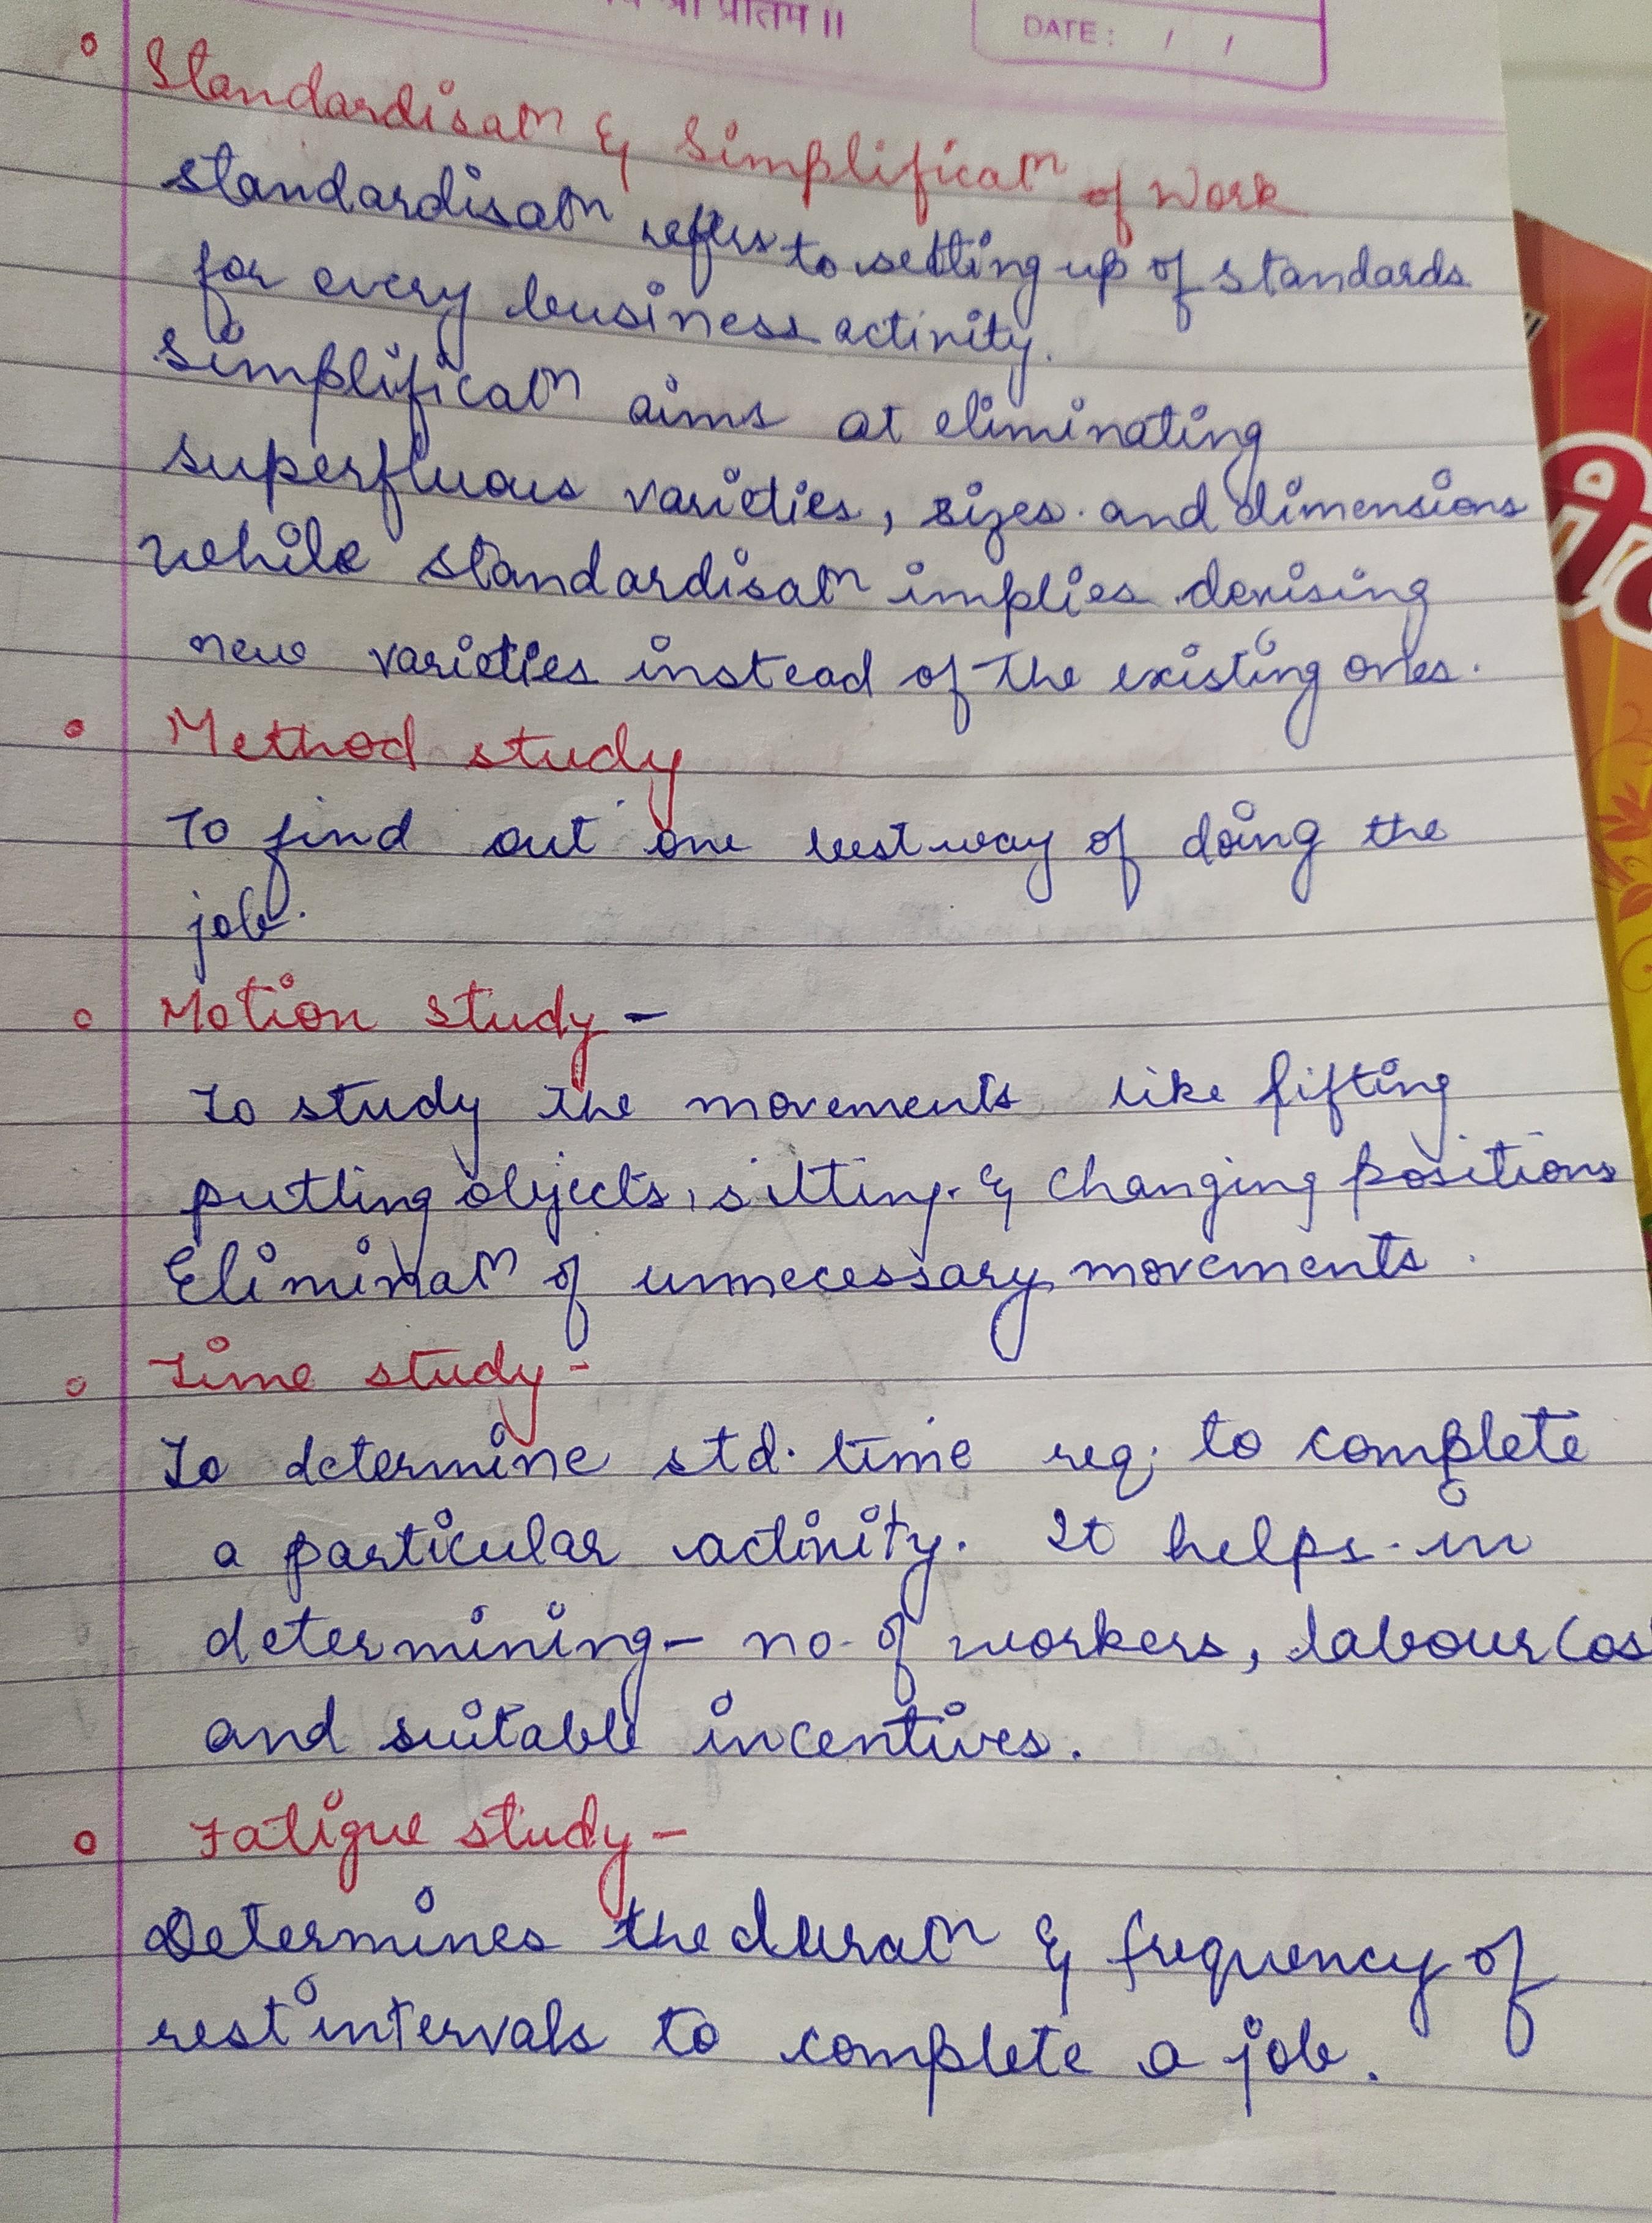 श्री प्रीतम ॥
DATE: / /
• Standardisatⁿ & Simplificatⁿ of Work
standardisatⁿ refers to setting up of standards
for every business activity.
Simplificatⁿ aims at eliminating
superfluous varieties, sizes and dimensions
while standardisatⁿ implies devising
new varieties instead of the existing ones.
• Method study
To find out one best way of doing the
job.
• Motion study -
To study the movements like fifting
putting objects, sitting & changing positions
Eliminatⁿ of unnecessary movements.
• Time study -
To determine std. time req. to complete
a particular activity. It helps in
determining - no. of workers, labour Cos
and suitable incentives.
• Fatigue study -
Determines the duratⁿ & frequency of
rest intervals to complete a job.